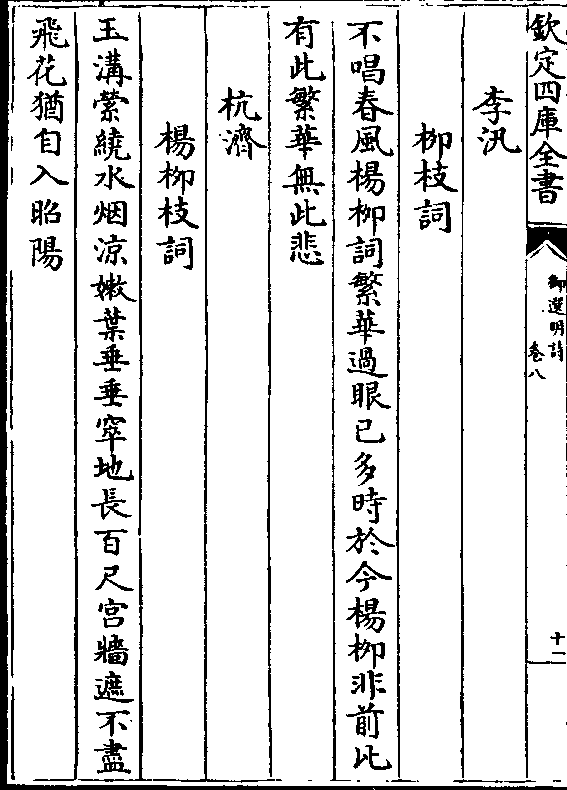 欽定四庫全書
御選明詩
卷八
十一
李汎
柳枝詞
不唱春風楊柳詞繁華過眼已多時於今楊柳非前比
有此繁華無此悲
杭濟
楊柳枝詞
玉溝縈繞水烟涼嫩葉垂垂窣地長百尺宫牆遮不盡
飛花猶自入昭陽